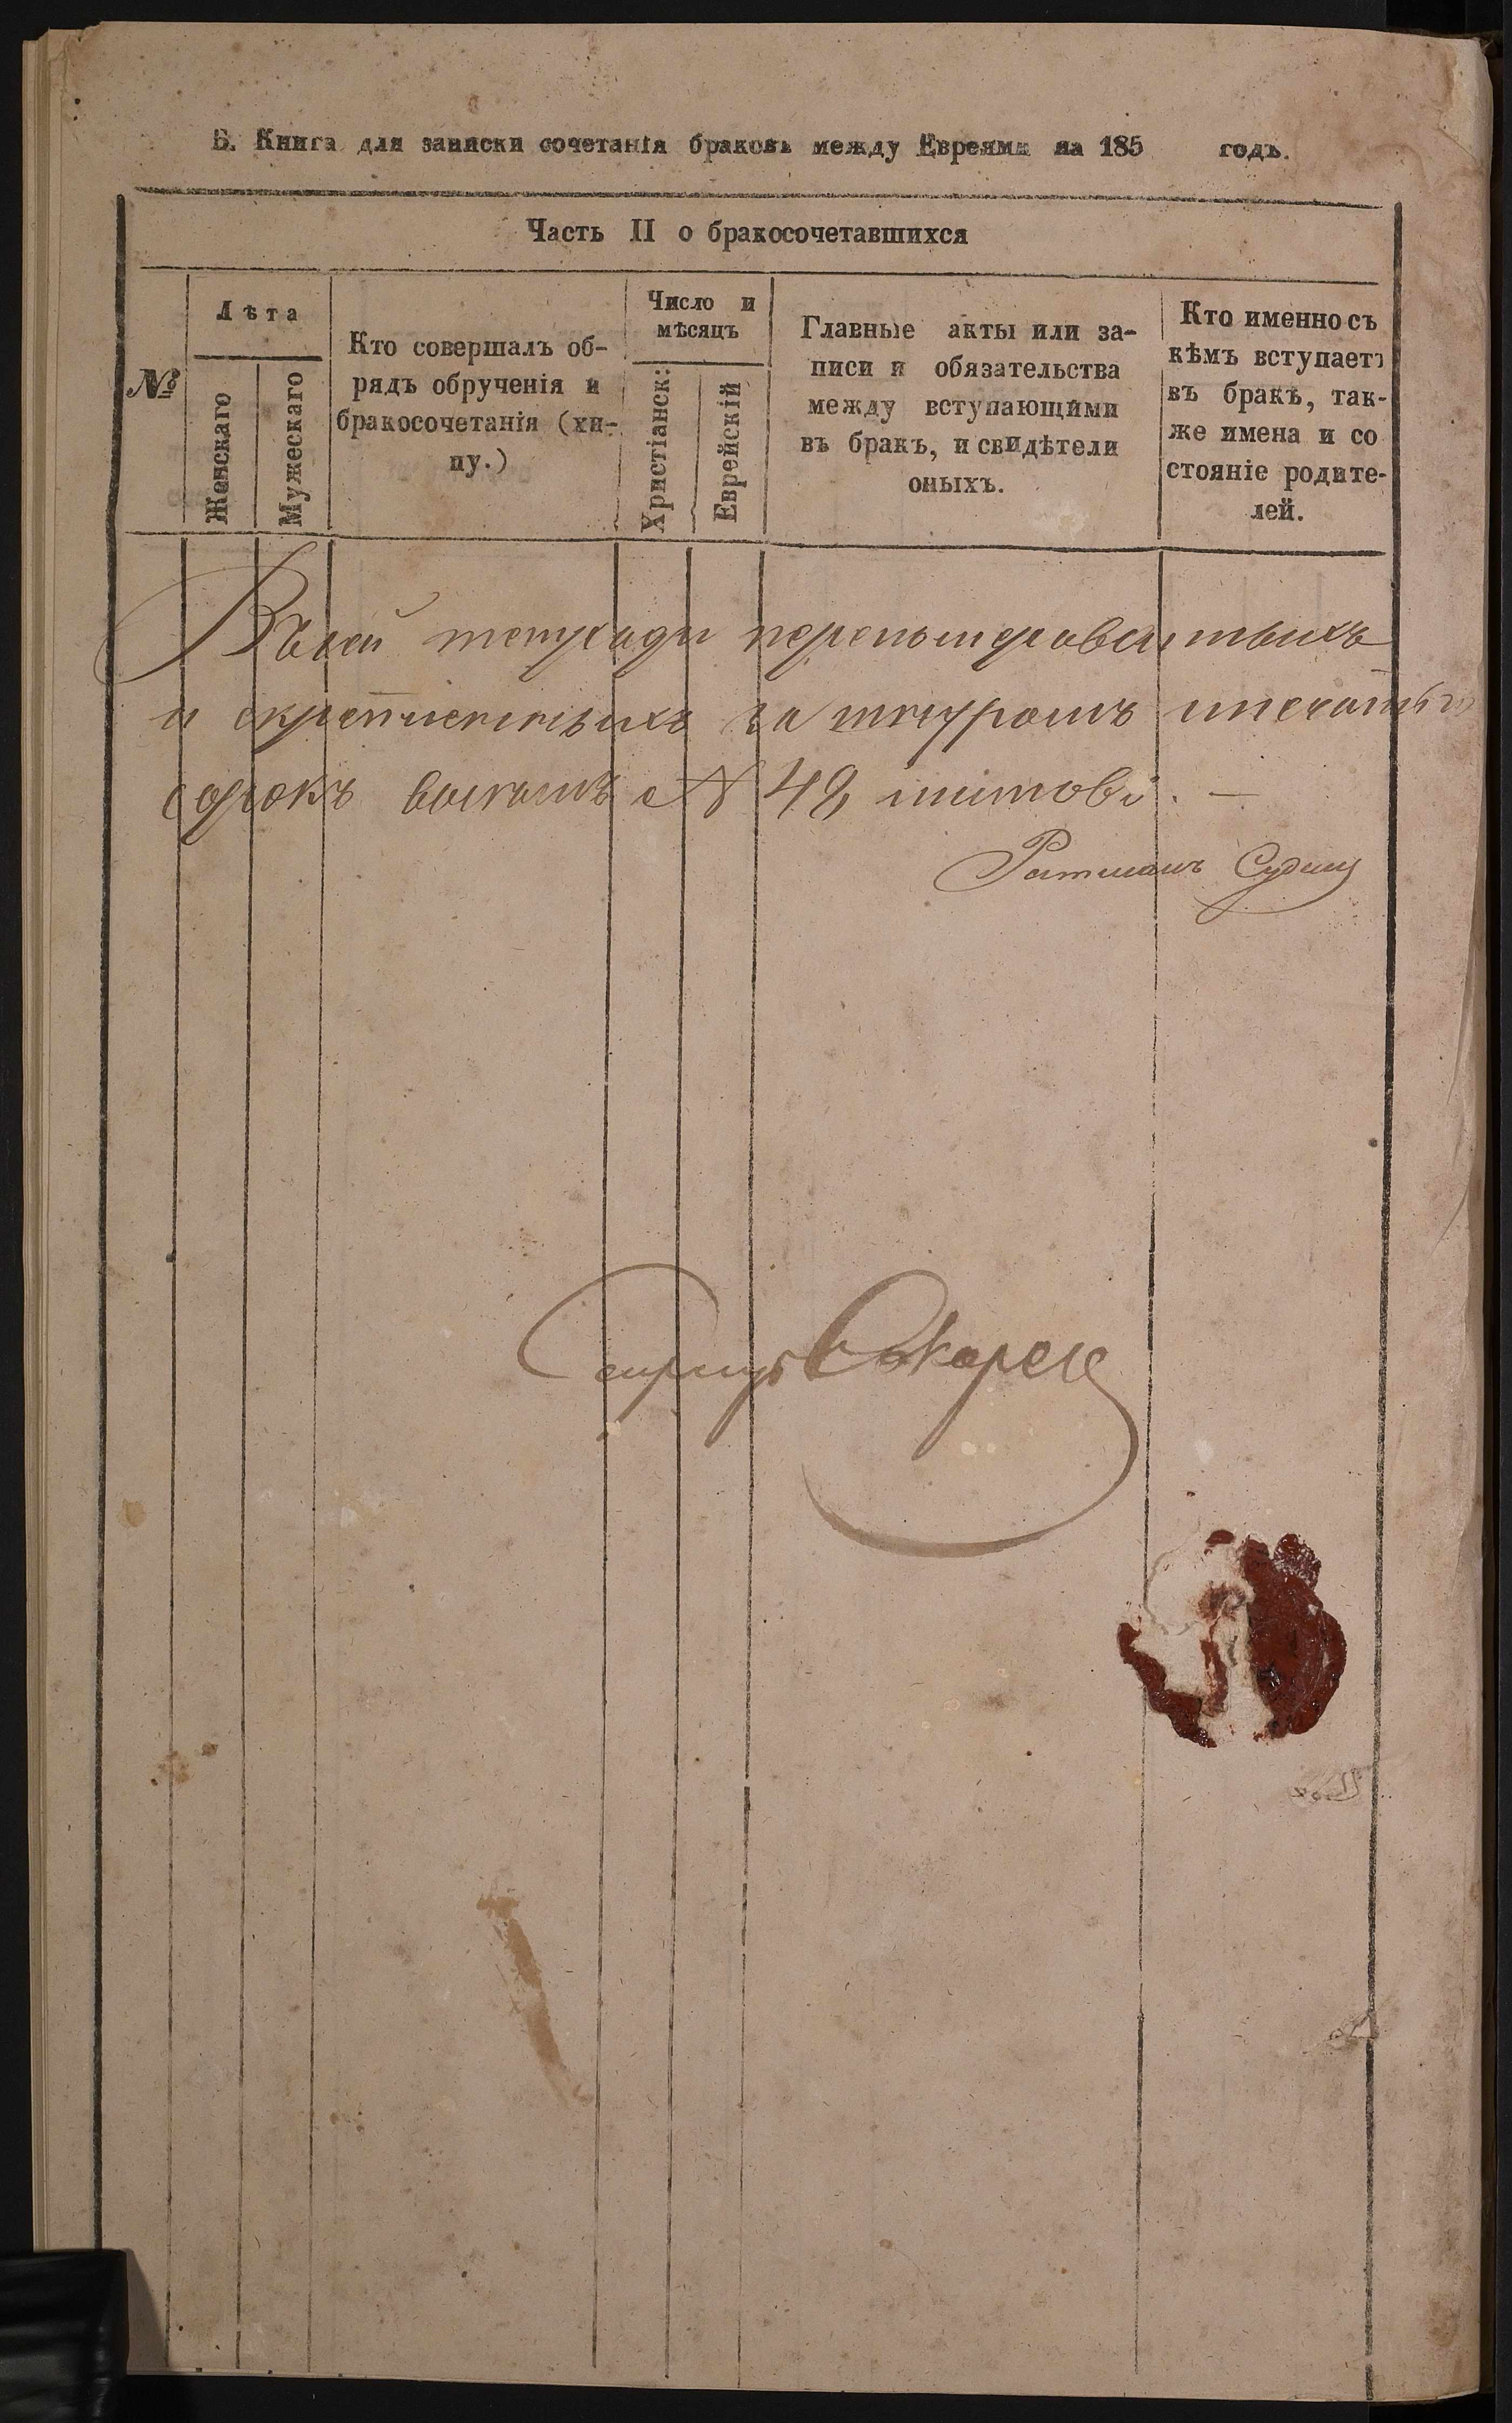 Б. Книга для записки сочетанія браковъ между Евреями на 185 годъ.
Часть II о бракосочетавшихся
№
Лѣта
Женскаго
Мужескаго
Кто совершалъ об-
рядъ обрученія и
бракосочетанія (хи-
пу.)
Число и
мѣсяцъ
Христіанск:
Еврейскій
Главные акты или за-
писи и обязательства
между вступающими
въ бракъ, и свидѣтели
оныхъ.
Кто именно съ
кѣмъ вступаетъ
въ бракъ, так-
же имена и со
стояніе родите-
лей.
Въ сей тетради перенумерованныхъ
и скрепленныхъ за шнуромъ ипечатью
сорокъ восемь № 48 листовъ. —
Ратманъ